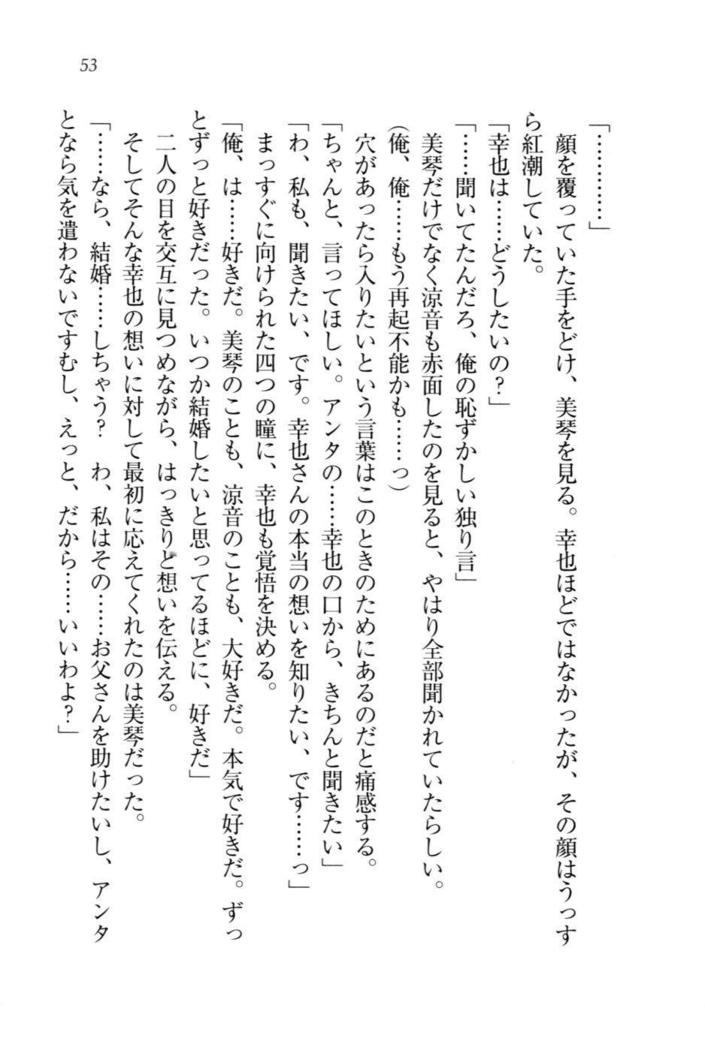 53
「…………」
　顔を覆っていた手をどけ、美琴を見る。幸也ほどではなかったが、その顔はうっす
ら紅潮していた。
「幸也は……どうしたいの？」
「……聞いてたんだろ、俺の恥ずかしい独り言」
　美琴だけでなく涼音も赤面したのを見ると、やはり全部聞かれていたらしい。
(俺、俺……もう再起不能かも……っ)
　穴があったら入りたいという言葉はこのときのためにあるのだと痛感する。
「ちゃんと、言ってほしい。アンタの……幸也の口から、きちんと聞きたい」
「わ、私も、聞きたい、です。幸也さんの本当の想いを知りたい、です……っ」
　まっすぐに向けられた四つの瞳に、幸也も覚悟を決める。
「俺、は……好きだ。美琴のことも、涼音のことも、大好きだ。本気で好きだ。ずっ
とずっと好きだった。いつか結婚したいと思ってるほどに、好きだ」
　二人の目を交互に見つめながら、はっきりと想いを伝える。
　そしてそんな幸也の想いに対して最初に応えてくれたのは美琴だった。
「……なら、結婚……しちゃう？　わ、私はその……お父さんを助けたいし、アンタ
となら気を遣わないですむし、えっと、だから……いいわよ？」